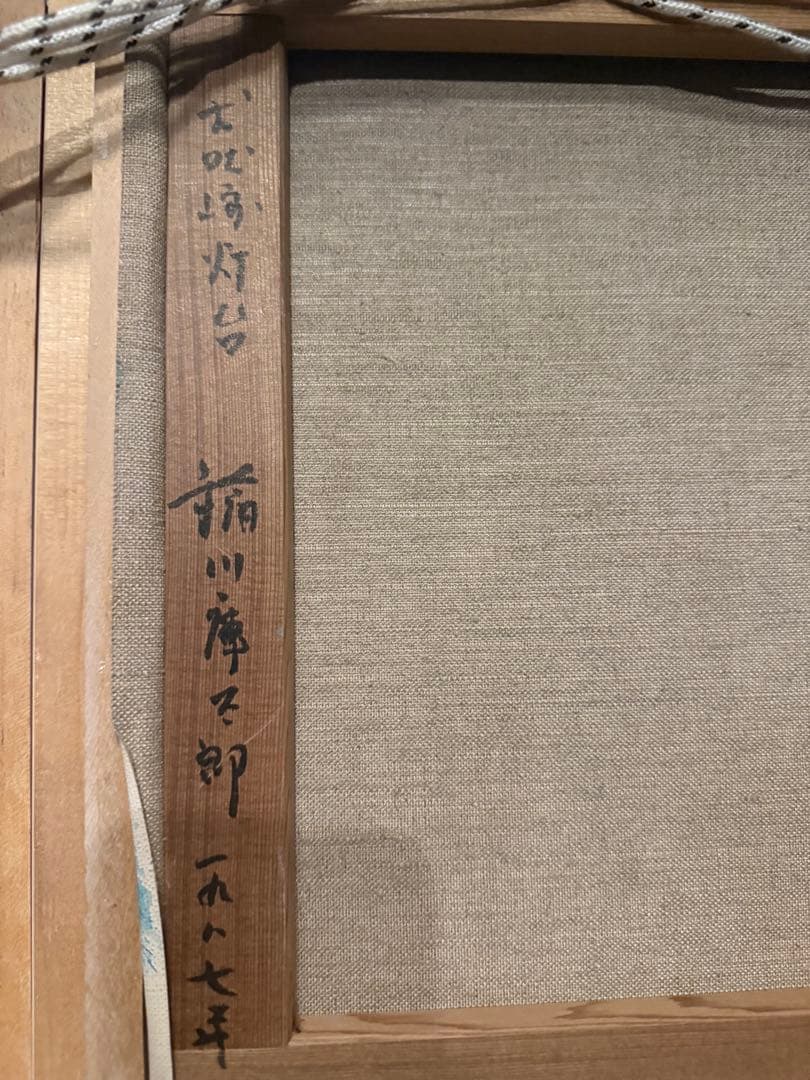 犬吠崎灯台
川庫太郎
一九八七年